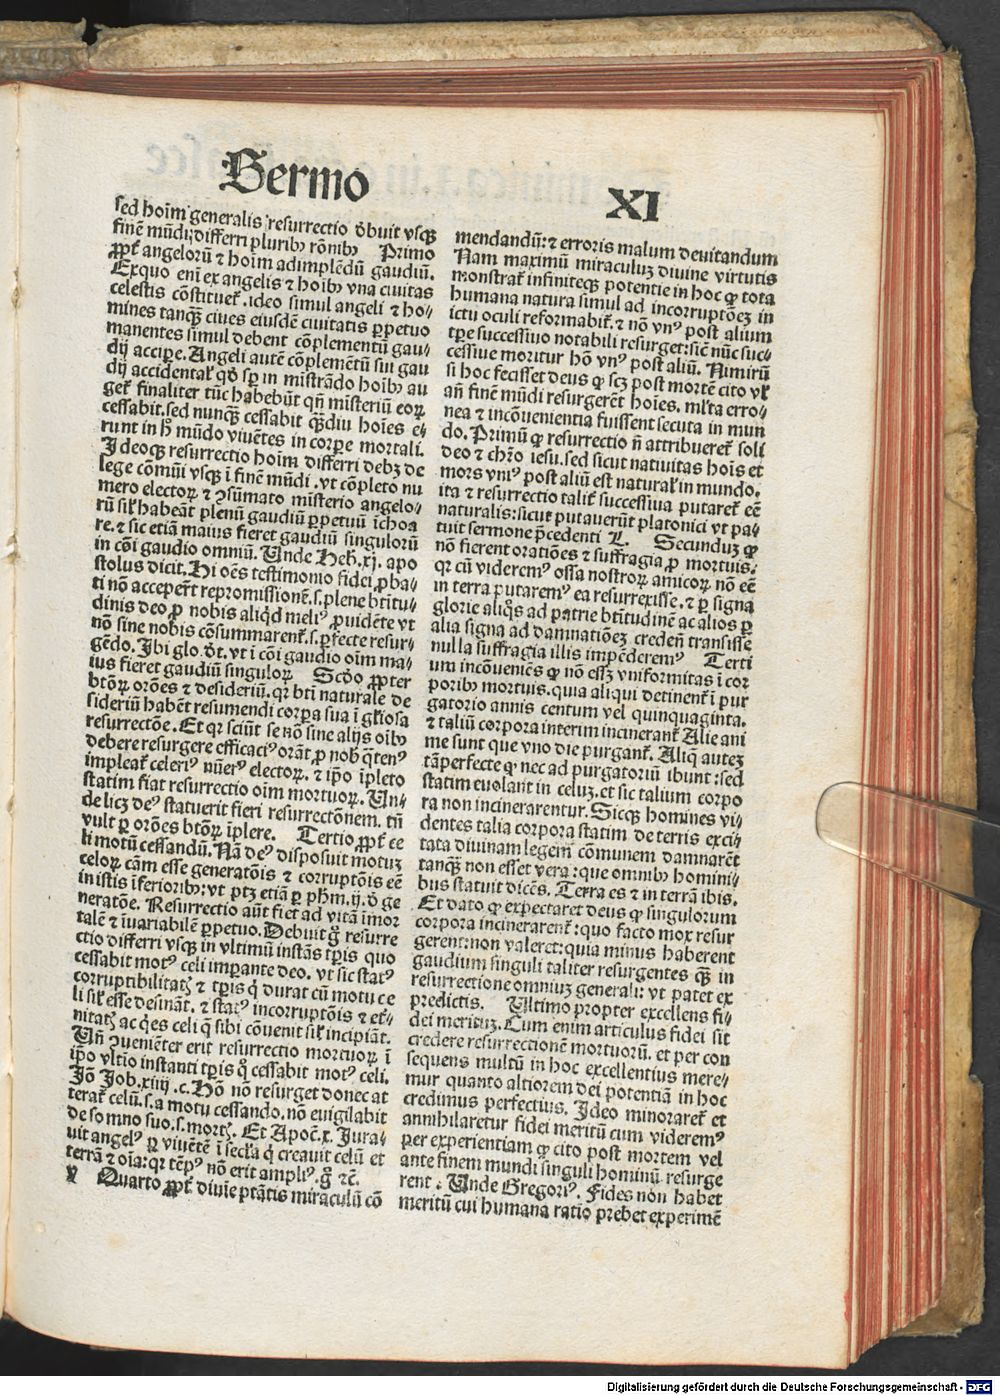 Sermo
XI
sed hoīm generalis resurrectio dʒbuit vsqꝫ
finē mūdi differri pluribꝰ rōnibꝰ Primo
ꝓpt̄ angeloꝝ ⁊ hoīm adimplēdū gaudiū.
Exquo enī ex angelis ⁊ hoībꝰ vna ciuitas
celestis cōstituet̄. ideo simul angeli ⁊ ho⸗
mines tanqꝫ ciues eiusdē ciuitatis ꝑpetuo
manentes simul debent cōplementū gau⸗
dij accipe. Angeli autē cōplemētū sui gau
dij accidental̄ qd̄ sꝑ in mīstrādo hoībꝰ au
get̄ finaliter tūc habebūt qn̄ misteriū eoꝝ
cessabit. sed nunqꝫ cessabit qꝫdiu hoīes e⸗
runt in hꝰ mūdo viuētes in corpe mortali.
Ideoqꝫ resurrectio hoīm differri debꝫ de
lege cōmūi vsqꝫ ī finē mūdi. vt cōpleto nu
mero electoꝝ ⁊ ꝯsūmato misterio angelo⸗
rū sil̄ habeāt plenū gaudiū ꝑpetuū īchoa
re. ⁊ sic etiā maius fieret gaudiū singulorū
in cōi gaudio omniū. Unde Heb. xj. apo
stolus dicit. Hi oēs testimonio fidei ꝓba⸗
ti nō acceperūt repromissionē. s. plene btītu⸗
dinis deo ꝓ nobis aliqd meliꝰ ꝓuidēte vt
nō sine nobis cōsummarent̄. s. ꝑfecte resur⸗
gēdo. Ibi glo. dt̄. vt ī cōi gaudio oīm ma⸗
ius fieret gaudiū singuloꝝ Scdo ꝓpter
btōꝝ orōes ⁊ desideriū. qꝛ btī naturale de
sideriū habēt resumendi corpa sua ī gl̄iosa
resurrectōe. Et qꝛ sciūt se nō sine alijs oībꝰ
debere resurgere efficaciꝰ orāt ꝓ nob q̄tenꝰ
impleat̄ celeriꝰ nūerꝰ electoꝝ. ⁊ ip̄o īpleto
statim fiat resurrectio oīm mortuoꝝ. Un⸗
de licꝫ deꝰ statuerit fieri resurrectōnem. tn̄
vult ꝑ orōes btōꝝ īplere. Tertio ꝓpt̄ ce
li motū cessandū. Nā deꝰ disposuit motuꝫ
celoꝝ cām esse generatōis ⁊ corruptōis eē
in istis īferioribꝰ: vt ptꝫ etiā ꝑ ph̄m. ij. d̄ ge
neratōe. Resurrectio aūt fiet ad vitā īmor
talē ⁊ īuariabilē ꝑpetuo. Debuit gͦ resurre
ctio differri vsqꝫ in vltimū instās tꝑis quo
cessabit motꝰ celi imꝑante deo. vt sic statꝰ
corruptibilitatꝭ ⁊ tꝑis q̄ durat cū motu ce
li sil̄ esse desināt. ⁊ statꝰ incorruptōis ⁊ et̄⸗
nitatꝭ ac q̄es celi q̄ sibi cōuenit sil̄ incipiāt.
Un̄ ꝯueniēter erit resurrectio mortuoꝝ ī
ip̄o vltīo instanti tꝑis qͦ cessabit motꝰ celi.
Iō Iob. xiiij .c. Hō nō resurget donec at
terat̄ celū. s. a motu cessando. nō euigilabit
de somno suo. s. mortꝭ. Et Apoc̄. x. Iura⸗
uit angelꝰ ꝑ viuētē ī secl̄a q̄ creauit celū et
terrā ⁊ oīa: qꝛ tēpꝰ nō erit ampliꝰ. gͦ ⁊c̄.
V Quarto ꝓpt̄ diuīe ptātis miraculū cō
mendandū: ⁊ erroris malum deuitandum
Nam maximū miraculuꝫ diuine virtutis
monstrat̄ infiniteqꝫ potentie in hoc ꝙ tota
humana natura simul ad incorruptōeꝫ in
ictu oculi reformabit̄. ⁊ nō vnꝰ post alium
tꝑe successiuo notabili resurget: sic̄ nūc suc⸗
cessiue moritur hō vnꝰ post aliū. Nimirū
si hoc fecisset deus ꝙ scꝫ post mortē cito vl̄
añ finē mūdi resurgerēt hoīes. ml̄ta erro⸗
nea ⁊ incōuenientia fuissent secuta in mun
do. Primū ꝙ resurrectio n̄ attribueret̄ soli
deo ⁊ chr̄o iesu. sed sicut natiuitas hoīs et
mors vniꝰ post aliū est natural̄ in mundo.
ita ⁊ resurrectio talit̄ successiua putaret̄ eē
naturalis: sicut putauerūt platonici vt pa⸗
tuit sermone p̄cedenti L. Secunduꝫ ꝙ
nō fierent oratiōes ⁊ suffragia ꝓ mortuis.
qꝛ cū videremꝰ ossa nostroꝝ amicoꝝ nō eē
in terra putaremꝰ ea resurrexisse. ⁊ ꝑ signa
glorie aliq̄s ad patrie btītudinē ac alios ꝑ
alia signa ad damnatiōeꝫ creden̄ transisse
nulla suffragia illis impēderemꝰ Terti
um incōueniēs ꝙ nō esseꝫ vniformitas ī cor
poribꝰ mortuis. quia aliqui detinent̄ ī pur
gatorio annis centum vel quinquaginta.
⁊ taliū corpora interim incinerant̄ Alie ani
me sunt que vno die purgant̄. Aliq̄ auteꝫ
tāperfecte ꝙ nec ad purgatoriū ibunt: sed
statim euolant in celuꝫ. et sic talium corpo
ra non incinerarentur. Sicqꝫ homines vi⸗
dentes talia corpora statim de terris exci⸗
tata diuinam legem cōmunem damnarēt
tanqꝫ non esset vera: que omnibꝰ homini⸗
bus statuit dicēs. Terra es ⁊ in terrā ibis.
Et dato ꝙ expectaret deus ꝙ singulorum
corpora incinerarent̄: quo facto mox resur
gerent: non valeret: quia minus haberent
gaudium singuli taliter resurgentes qꝫ in
resurrectione omniuꝫ generali: vt patet ex
predictis. Ultimo propter excellens fi⸗
dei merituꝫ. Cum enim articulus fidei sit
credere resurrectionē mortuorū. et per con
sequens multū in hoc excellentius mere⸗
mur quanto altiorem dei potentiā in hoc
credimus perfectius. Ideo minoraret̄ et
annihilaretur fidei meritū cum videremꝰ
per experientiam ꝙ cito post mortem vel
ante finem mundi singuli hominū resurge
rent. Unde Gregoriꝰ. Fides non habet
meritū cui humana ratio prebet experimē
Digitalisierung gefördert durch die Deutsche Forschungsgemeinschaft - DFG